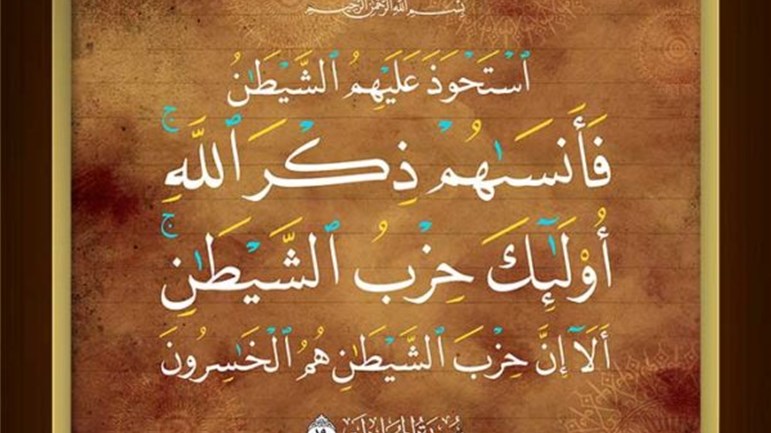 بِسْمِ اللَّهِ الرَّحْمَٰنِ الرَّحِيمِ
ٱسْتَحْوَذَ عَلَيْهِمُ ٱلشَّيْطَٰنُ
فَأَنسَىٰهُمْ ذِكْرَ ٱللَّهِ ۚ
أُو۟لَٰٓئِكَ حِزْبُ ٱلشَّيْطَٰنِ ۚ
أَلَآ إِنَّ حِزْبَ ٱلشَّيْطَٰنِ هُمُ ٱلْخَٰسِرُونَ